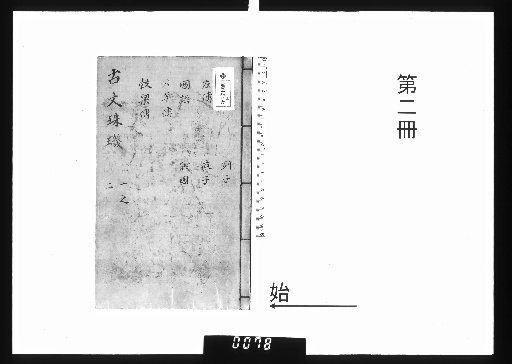 第二冊
始
列子
左傳
莊子
國語
戰國
公羊傳
穀梁傳
古文珠璣
一之
二
0078